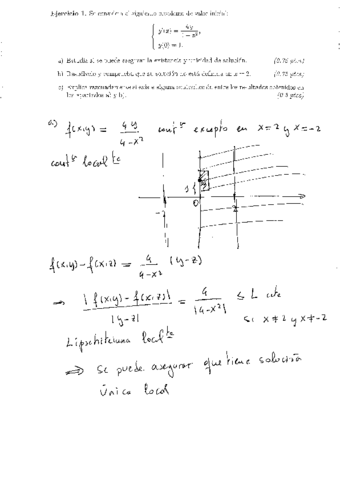 Ejercicio 1. Se considera el siguiente problema de valor inicial:
{ y'(x) = 4y / (4 − x²),
y(0) = 1.
a) Estudia si se puede asegurar la existencia y unicidad de solución. (0.75 ptos)
b) Resuélvelo y comprueba que su solución no está definida en x = 2. (0.75 ptos)
c) Explica razonadamente si existe alguna contradicción entre los resultados obtenidos en
los apartados a) y b). (0.5 ptos)
a.) f(x,y) = 4y / (4-x²) contª excepto en x=2 y x=-2
contª localᵗᵉ
f(x,y) - f(x,z) = 4 / (4-x²) (y-z)
⇒ |f(x,y) - f(x,z)| / |y-z| = 4 / |4-x²| ≤ L cte
si x≠2 y x≠-2
Lipschitziana localᵗᵉ
⇒ se puede asegurar que tiene solución
única local